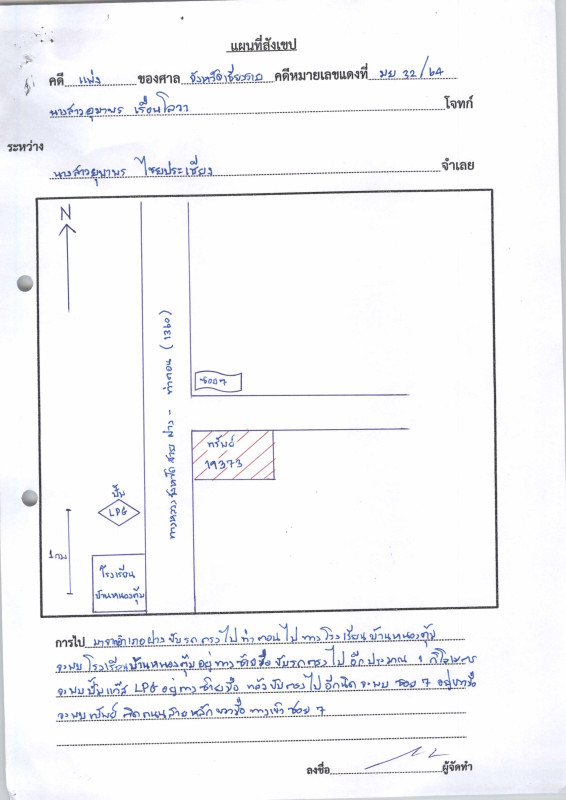 แผนที่สังเขป
คดี แพ่ง ของศาล จังหวัดเชียงราย คดีหมายเลขแดงที่ มย 32/64
นางสาวอุมาพร เรือนโลวา โจทก์
ระหว่าง
นางสาวยุพาพร ไชยประเซียง จำเลย
N
ทางหลวงจังหวัดสาย ฝาง - ท่าตอน (1360)
ซอย 7
ทรัพย์
19373
ปั๊ม
LPG
1 กม
โรงเรียน
บ้านหนองตุ้ม
การไป มาจากอำเภอฝาง ขับรถตรงไป ท่าตอนไป ทางโรงเรียนบ้านหนองตุ้ม
จะพบ โรงเรียนบ้านหนองตุ้มอยู่ทางซ้ายมือ ขับรถตรงไป อีกประมาณ 1 กิโลเมตร
จะพบปั๊มแก๊ส LPG อยู่ทางซ้ายมือ แล้วขับตรงไปอีกนิด จะพบ ซอย 7 อยู่ขวามือ
จะพบทรัพย์ ติดถนนสายหลัก ขวามือ ทางเข้า ซอย 7
ลงชื่อ ผู้จัดทำ